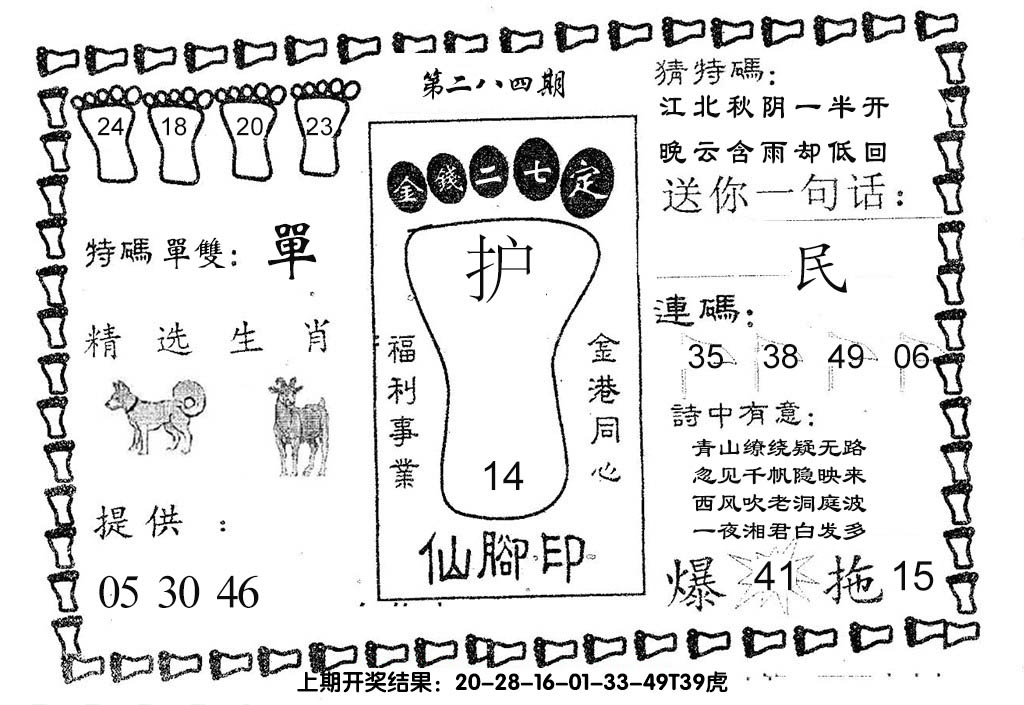 第二八四期
24 18 20 23
特碼單雙：單
精选生肖
提供：
05 30 46
金錢二七定
护
福利事業
金港同心
14
仙腳印
猜特碼：
江北秋阴一半开
晚云含雨却低回
送你一句话：
民
連碼：
35 38 49 06
詩中有意：
青山缭绕疑无路
忽见千帆隐映来
西风吹老洞庭波
一夜湘君白发多
爆 41 拖 15
上期开奖结果：20-28-16-01-33-49T39虎